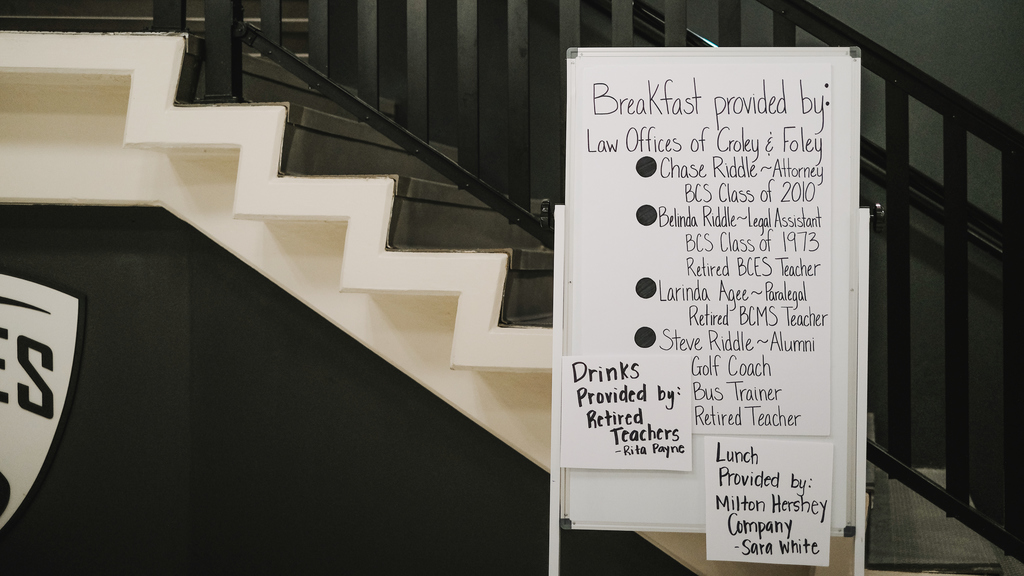 Breakfast provided by:
Law Offices of Croley & Foley
Chase Riddle ~ Attorney
BCS Class of 2010
Belinda Riddle ~ Legal Assistant
BCS Class of 1973
Retired BCES Teacher
Larinda Agee ~ Paralegal
Retired BCMS Teacher
Steve Riddle ~ Alumni
Golf Coach
Bus Trainer
Retired Teacher
Drinks
Provided by:
Retired
Teachers
- Rita Payne
Lunch
Provided by:
Milton Hershey
Company
- Sara White
ES